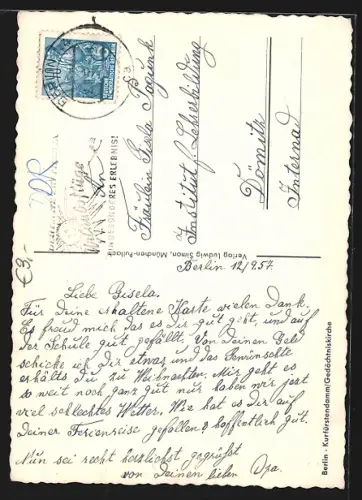 BERLIN
DDR
EIN BESONDERES ERLEBNIS!
An
Fräulein Gisela
Institut f. Lehrerbildung
Dömitz
Internad
Verlag Ludwig Simon, München-Pullach
€3,-
Berlin 12/9.57.
Liebe Gisela.
Für Deine erhaltene Karte vielen Dank.
Es freud mich das es Dir gut geht, und auf
der Schule gut gefällt. Von Deinen Geld
schicke ich Dir etwas und das Gewünschte
erhälts Du zu Weihnachten. Mir geht es
so weit noch ganz gut nur haben wir jezt
viel schlechtes Wetter. Wie hat es Dir auf
Deiner Ferienreise gefallen? hoffentlich gut.
Nun sei recht herzlichst gegrüßt
von Deinen lieben Opa.
Berlin - Kurfürstendamm/Gedächtniskirche